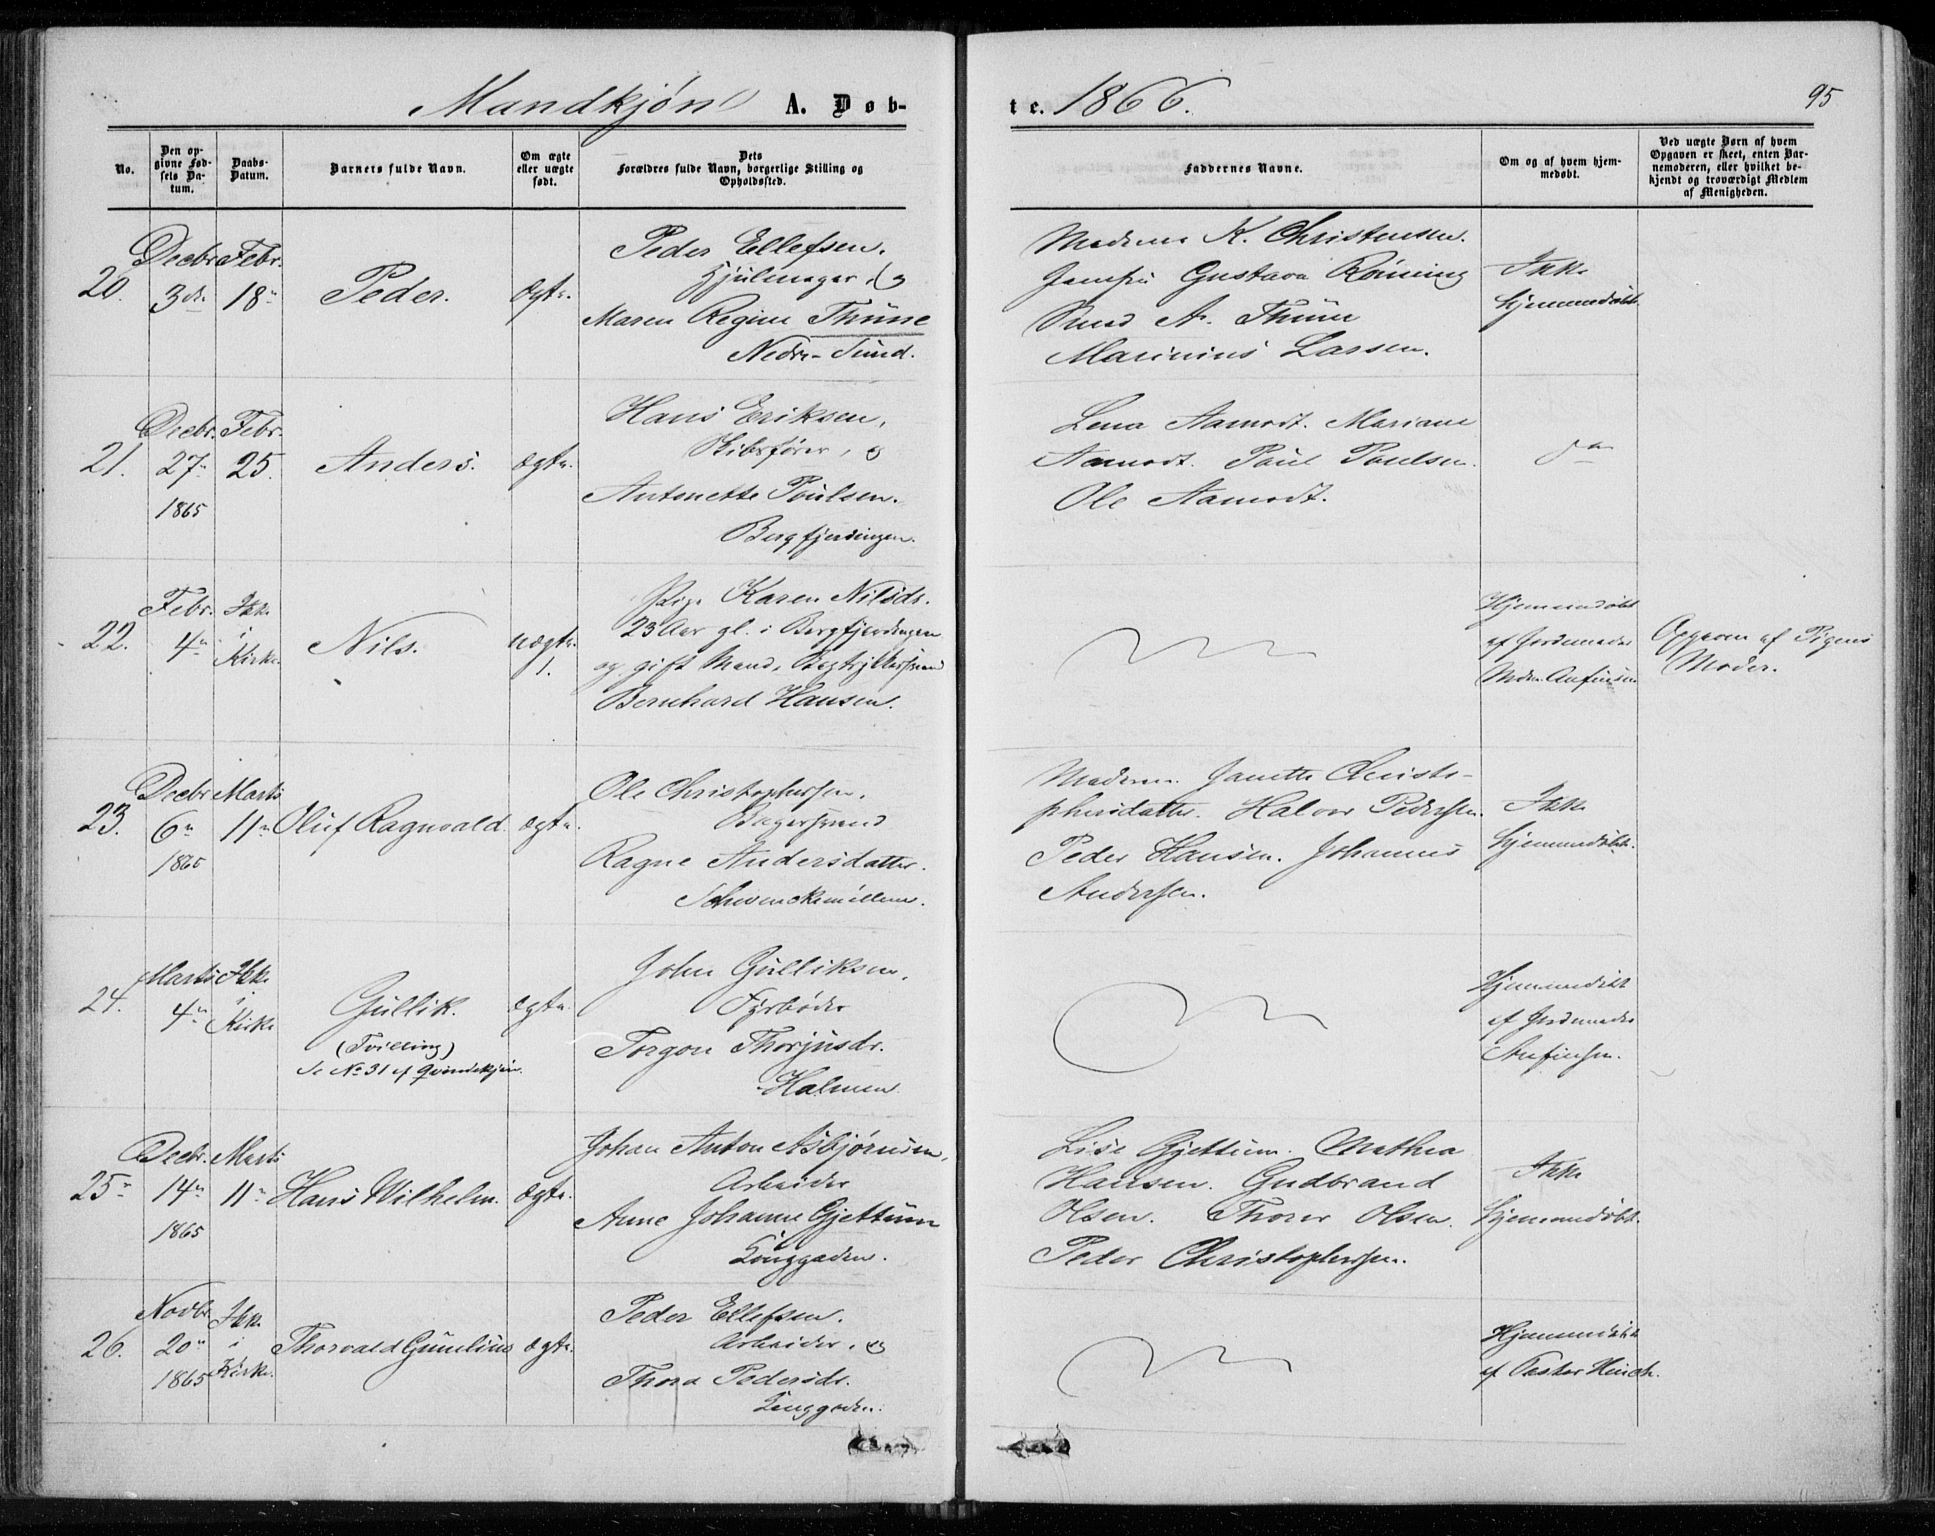 Mandkjøn A. Døb-
te. 1866.
95
No.
Den opgivne Fødsels Datum.
Daabs-Datum.
Barnets fulde Navn.
Om ægte eller uægte født.
Dets Forældres fulde Navn, borgerlige Stilling og Opholdssted.
Faddernes Navne.
Om og af hvem hjemmedøbt.
Ved uægte Børn af hvem Opgaven er skeet, enten Barnemoderen, eller hvilket bekjendt og troværdigt Medlem af Menigheden.
20.
Decbr.
3de
Febr.
18
Peder.
Ægte.
Peder Ellefsen.
Hjulmager, og
Maren Regine Thune
Nedre-Sund.
K. Christensen.
Jomfru Gustava Rönning
Knud A. Thune
Marinius Larsen.
Ikke
hjemmedøbt.
21.
Decbr.
27
1865
Febr.
25.
Anders.
Ægte.
Hans Eriksen,
og
Antonette Poulsen.
Bergfjerdingen.
Lena Aamodt. Mariane
Aamodt. Paul Paulsen.
Ole Aamodt.
22.
Febr.
4
Ikke
i
Kirke.
Nils.
uægte.
1.
Pige Karen Nilsdr.
23 Aar gl. i Bergfjerdingen
og gift Mand,
Bernhard Hansen.
Hjemmedøbt
af Jordemoder
Mdm. Anfinsen
Opgaven af Pigens
Moder.
23.
Decbr.
6
1865
Marts
11
Oluf Ragnvald.
Ægte.
Ole Christophersen.
Bagersvend
Ragne Andersdatter.
Schwenckemöllen.
Madam Janette Christo-
phersdatter. Halvor Pedersen.
Peder Hansen. Johannes
Andersen.
Ikke
hjemmedøbt.
24.
Marts
4
Ikke
i
Kirke
Gullik.
(Tvilling)
Se No 31 af Qvindekjøn.
Ægte.
John Gulliksen,
Fyrbøder
Torgon Thorjusdr.
Holmen.
Hjemmedøbt
af Jordemoder
Anfinsen.
25
Decbr.
14
1865
Marts
11
Hans Wilhelm.
Ægte.
Johan Anton Asbjørnsen,
Arbeider
Anne Johanne Gjettum
Konggaden.
Lise Gjettum. Mathea
Hansen. Gudbrand
Olsen. Thorer Olsen.
Peder Christophersen.
Ikke
hjemmedøbt.
26.
Novbr.
20
1865
Ikke
i
Kirke.
Thorvald Gunelius
Ægte.
Peder Ellefsen.
Arbeider, og
Thora Pedersdr.
Konggaden.
Hjemmedøbt
af Pastor Heuch.